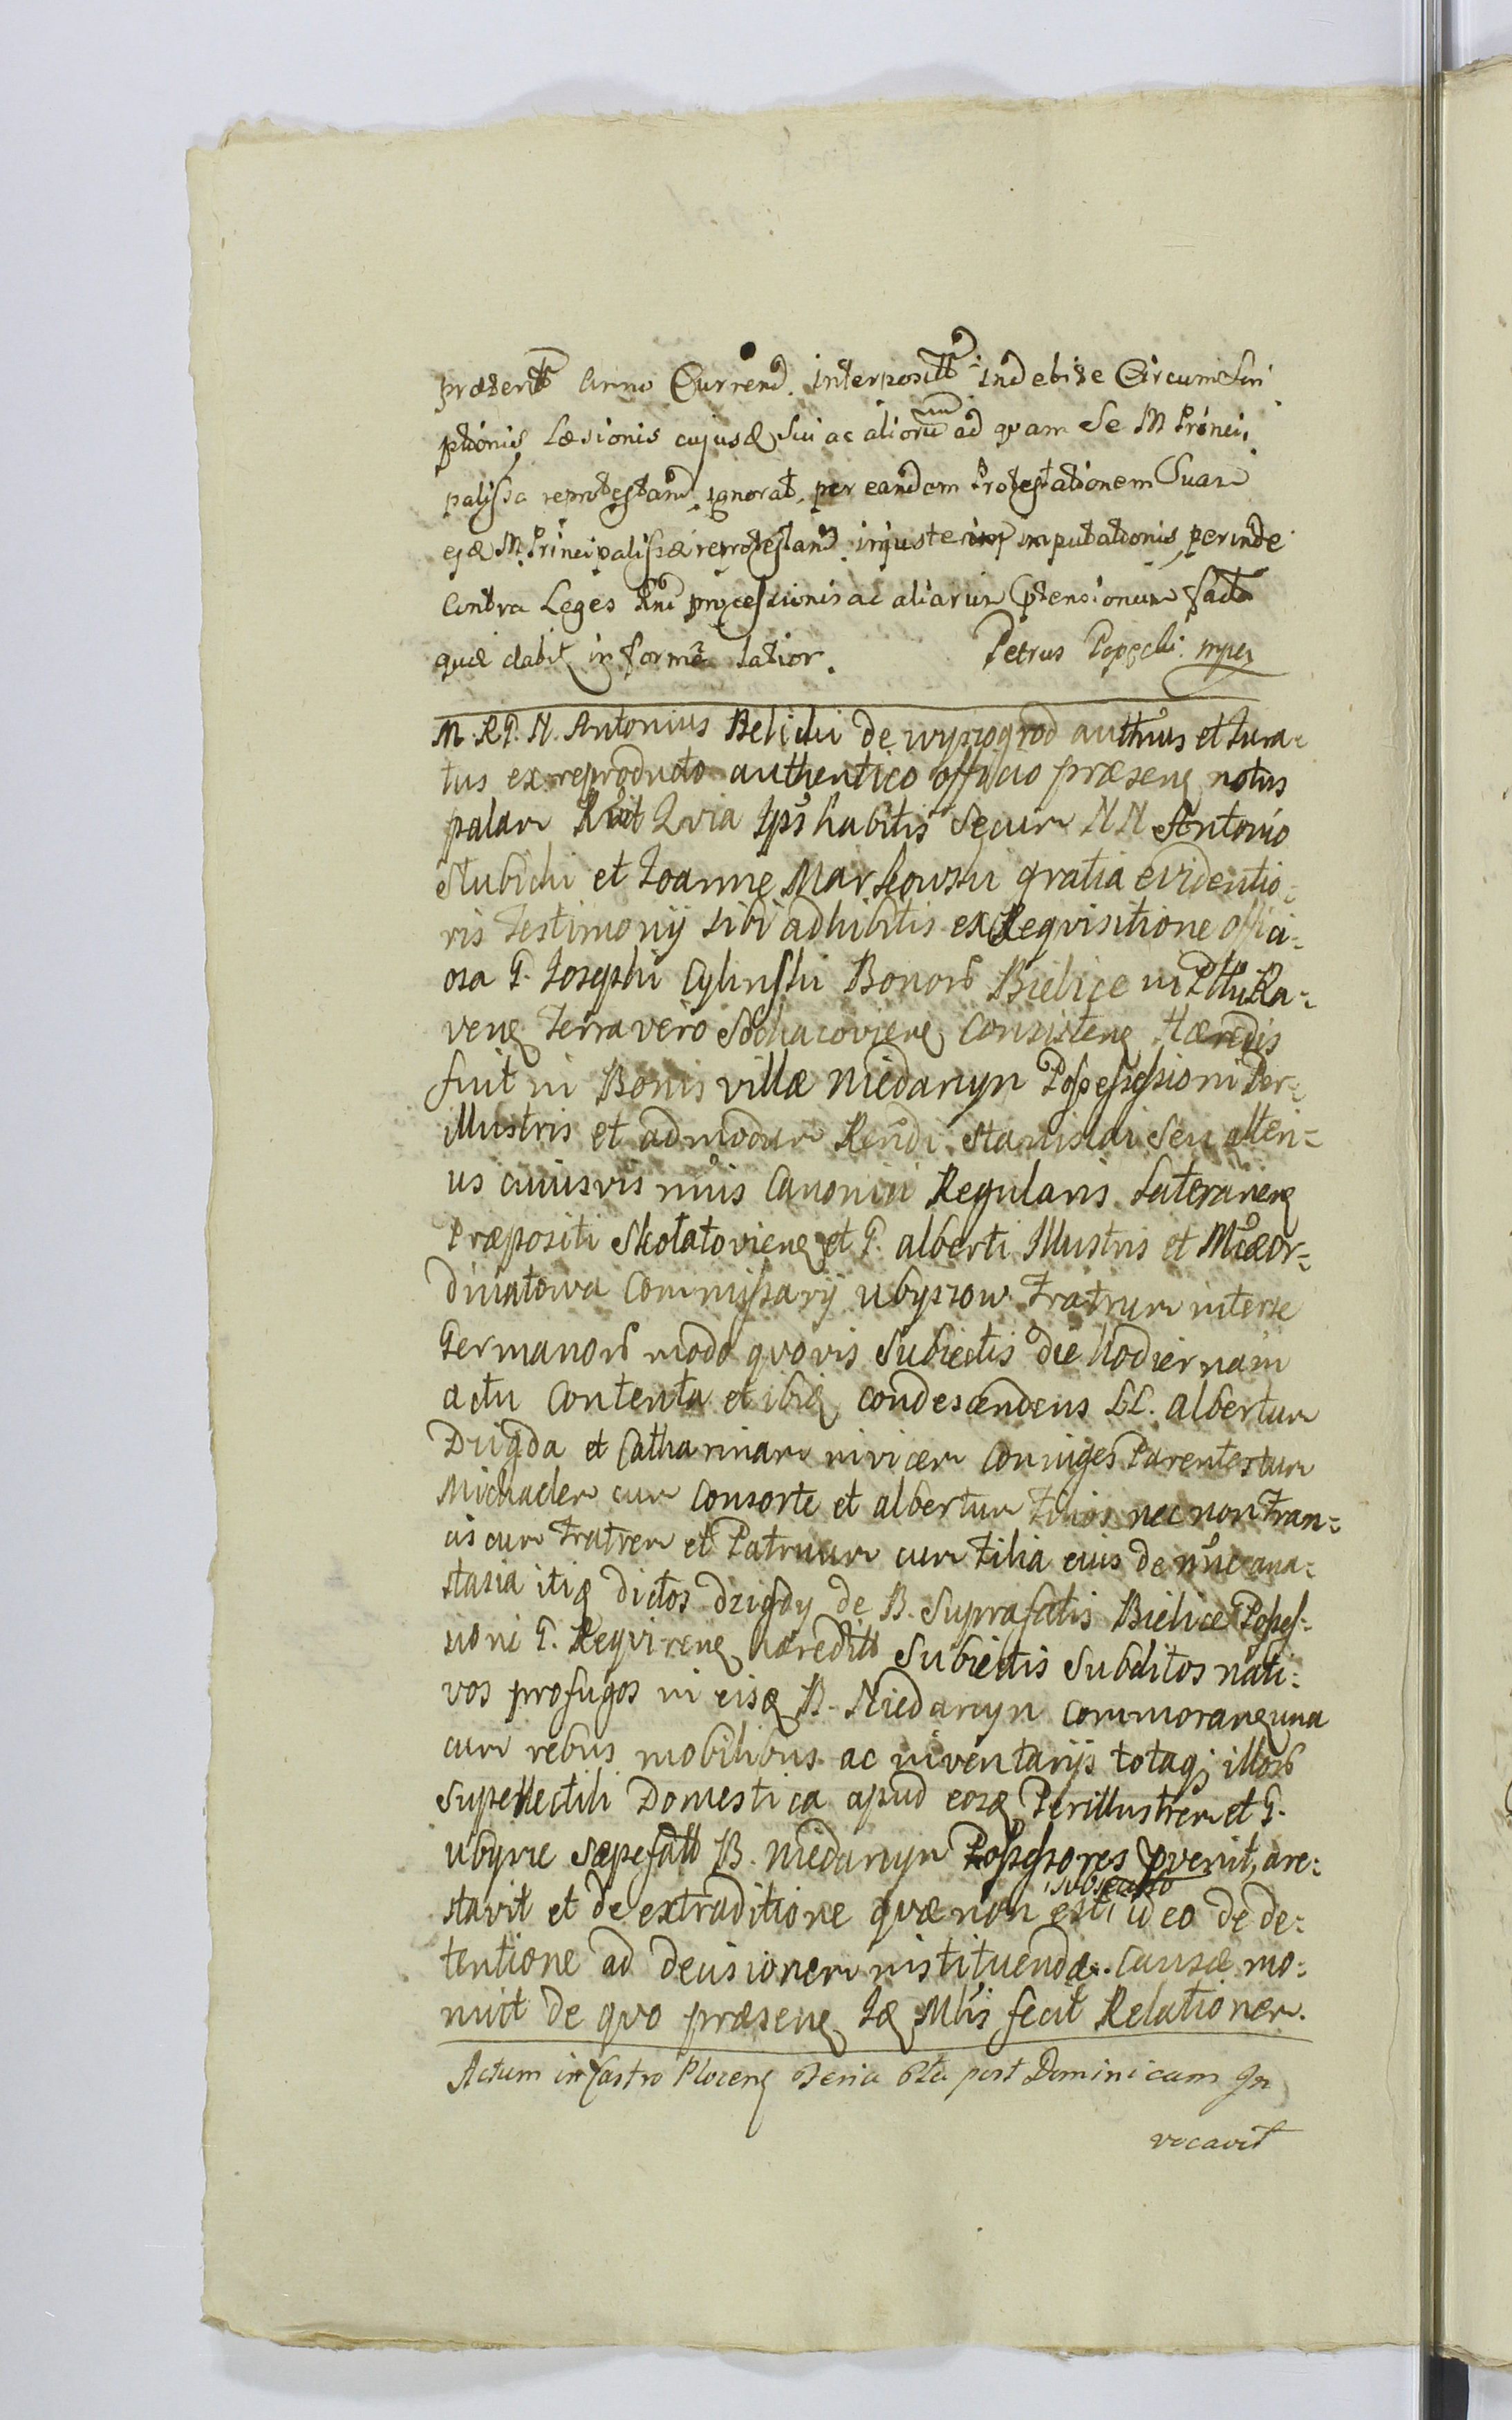 præterit Anno Currend. interposit indebite Circumscri
ptionis Læsionis cujusq Sui ac aliorum ad quam Se M Princi
palissa reprotestand. ignorat, per eandem Protestationem Suam
ejq M. Principalissæ reprotestand. injuste imputationis, perinde
Contra Leges Rni processionis ac aliarum Ptensionum facta
quæ dabit in forma latior. Petrus mpr
M. R P. N. Antonius Belicki de wyszogrod authus et Jura-
tus ex reproducto authentico officio præsenq notus
palam Rcit Quia Ips habitis Secum NN Antonio
Stubicki et Joanne Markowski gratia evidentio-
ris Testimonij sibi adhibitis ex Requisitione offici-
osa G. Josephi Cylinski Bonor Bielice in Pttu Ra-
venq Terra vero Sochacovienq Consistenq Hæredis
fuit in Bonis villæ Niedarzyn Possessioni Per-
illustris et admodum Rendi Stanislai Seu alteri-
us cuiusvis nnis Canonici Regularis Lateranenq
Præpositi Skolatovienq et G. alberti Illustris et Mcæ or-
dinatowa Commissarij Ubyszow Fratrum inter se
Germanor modo quovis Subiectis die hodierna in
actu Contenta et ibiq condescendens LL. Albertum
Dzigda et Catharinam invicem Coniuges Parentes tum
Michaelem cum Consorte et albertum Filios nec non Fran-
ciscum Fratrem et Patruum cum Filia eius de nne ana-
stasia itiq dictos Dzigdy de B. Suprafatis Bielice Posses-
sioni G. Requirenq hæreditt Subiectis Subditos nati-
vos profugos in eisq B. Niedarzyn Commoranq una
cum rebus mobilibus ac inventarijs totaq; illor
Supellectili Domestica apud eosq Perillustrem et G.
Ubysze sæpefatt B. Niedarzyn Possessores pvenit, are-
stavit et de extraditione quæ non est subsecuta ideo de de-
tentione ad decisionem instituendæ Causæ mo-
nuit de quo præsenq Jq Mtis fecit Relationem.
Actum in Castro Plocenq Feria 6ta post Dominicam In
vocavit